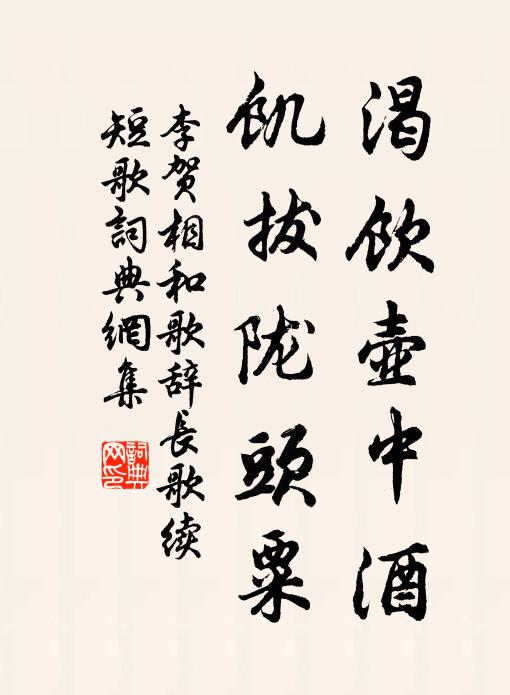 渴饮壶中酒
饥拔陇頭粟
李贺相和歌辞長歌续
短歌詞典網集
詞典
网印